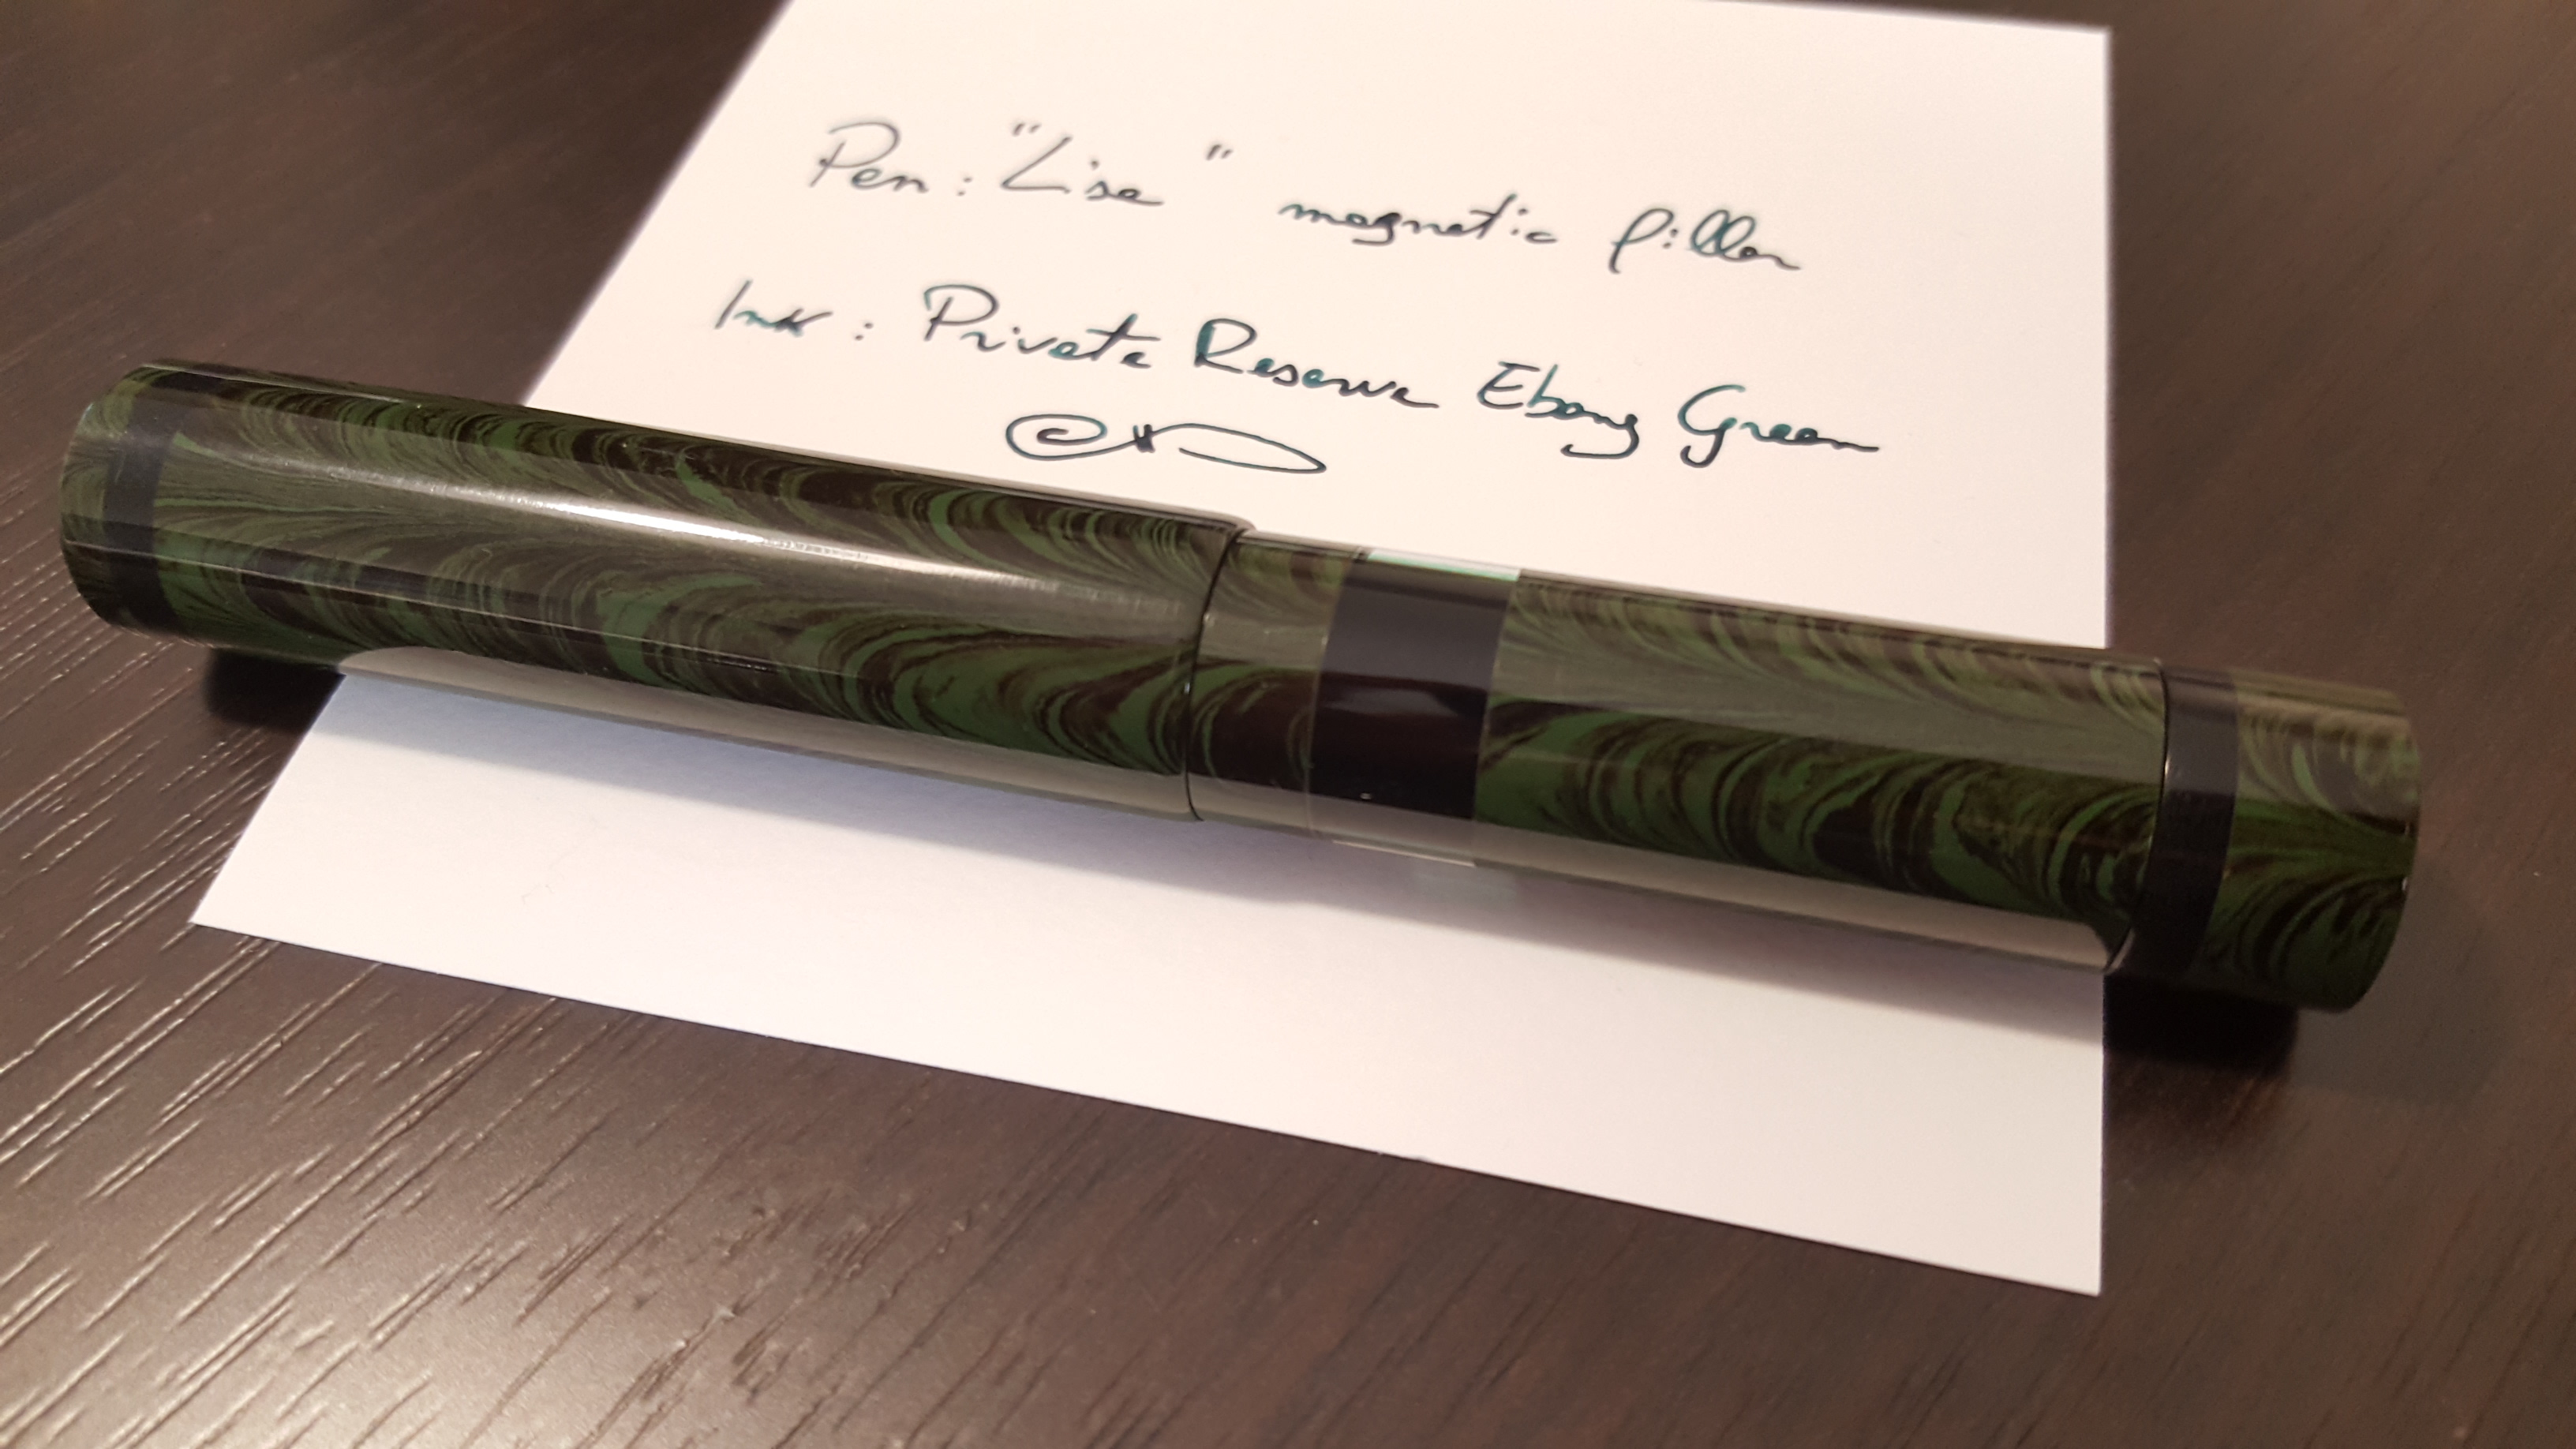 Pen: "Lisa" magnetic filler
Ink: Private Reserve Ebony Green